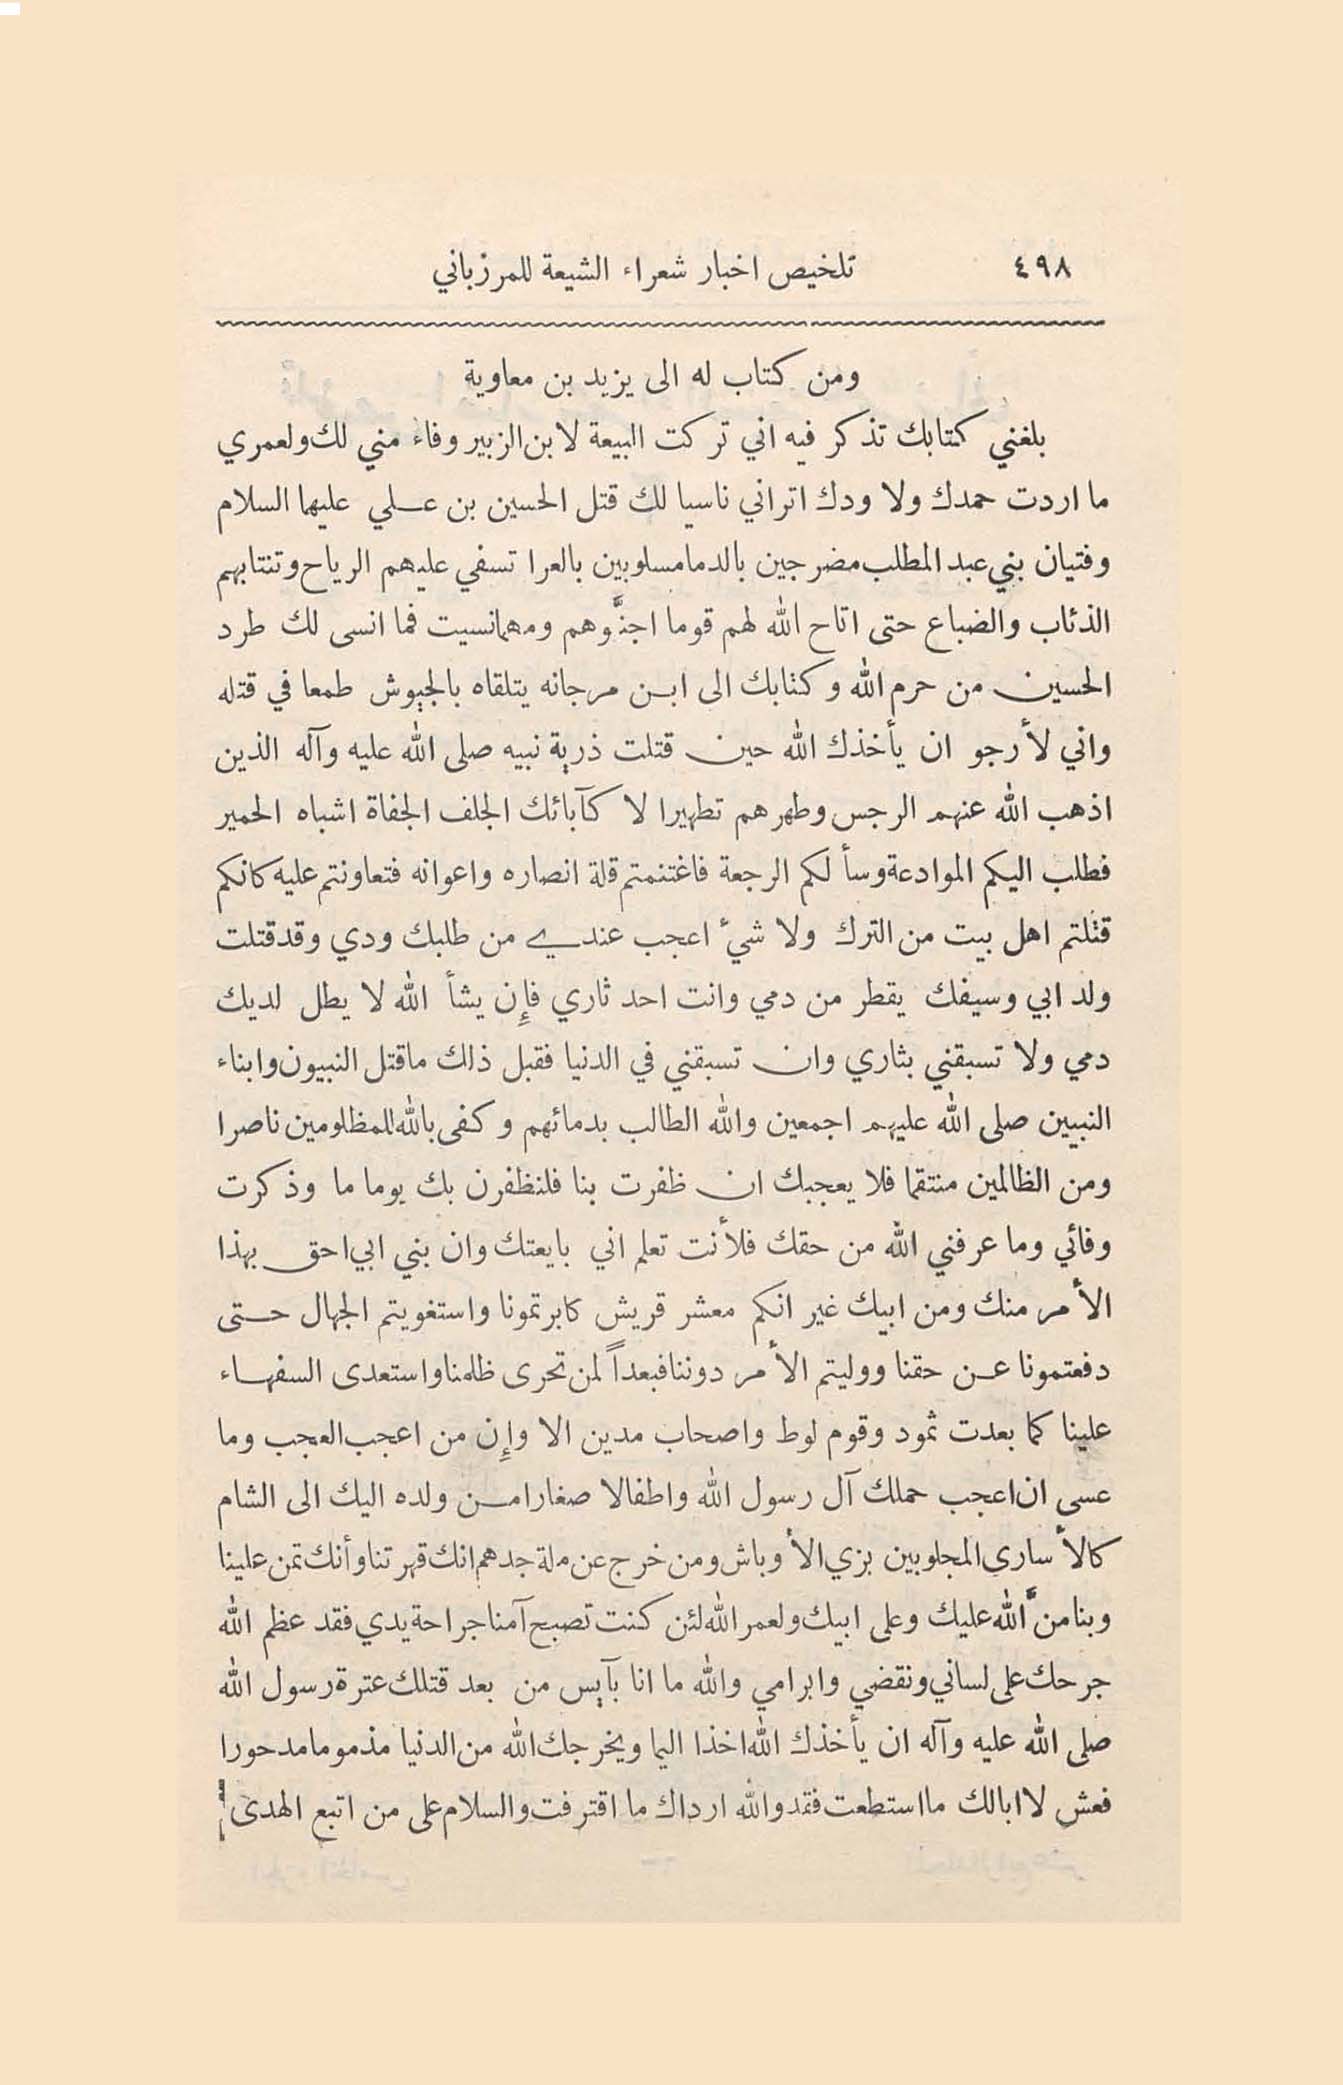 ٤٩٨ تلخيص اخبار شعراء الشيعة للمرزباني
ومن كتاب له الى يزيد بن معاوية
بلغني كتابك تذكر فيه اني تركت البيعة لابن الزبير وفاء مني لك ولعمري
ما اردت حمدك ولا ودك اتراني ناسيا لك قتل الحسين بن علي عليهما السلام
وفتيان بني عبد المطلب مضرجين بالدما مسلوبين بالعرا تسفي عليهم الرياح وتنتابهم
الذئاب والضباع حتى اتاح الله لهم قوما اجنُّوهم ومهما نسيت فما انسى لك طرد
الحسين من حرم الله وكتابك الى ابن مرجانه يتلقاه بالجيوش طمعا في قتله
واني لأرجو ان يأخذك الله حين قتلت ذرية نبيه صلى الله عليه وآله الذين
اذهب الله عنهم الرجس وطهرهم تطهيرا لا كآبائك الجلف الجفاة اشباه الحمير
فطلب اليكم الموادعة وسألكم الرجعة فاغتنمتم قلة انصاره واعوانه فتعاونتم عليه كانكم
قتلتم اهل بيت من الترك ولا شيء اعجب عندي من طلبك ودي وقد قتلت
ولد ابي وسيفك يقطر من دمي وانت احد ثاري فإن يشأ الله لا يطل لديك
دمي ولا تسبقني بثاري وان تسبقني في الدنيا فقبل ذلك ما قتل النبيون وابناء
النبيين صلى الله عليهم اجمعين والله الطالب بدمائهم وكفى بالله للمظلومين ناصرا
ومن الظالمين منتقما فلا يعجبك ان ظفرت بنا فلنظفرن بك يوما ما وذكرت
وفائي وما عرفني الله من حقك فلأنت تعلم اني بايعتك وان بني ابي احق بهذا
الأمر منك ومن ابيك غير انكم معشر قريش كابرتمونا واستغويتم الجهال حتى
دفعتمونا عن حقنا ووليتم الأمر دوننا فبعداً لمن تحرى ظلمنا واستعدى السفهاء
علينا كما بعدت ثمود وقوم لوط واصحاب مدين الا وإن من اعجب العجب وما
عسى ان اعجب حملك آل رسول الله واطفالا صغارا من ولده اليك الى الشام
كالأسارى المجلوبين بزي الأوباش ومن خرج عن ملة جدهم انك قهرتنا وأنك تمن علينا
وبنا منَّ الله عليك وعلى ابيك ولعمر الله لئن كنت تصبح آمنا جراحة يدي فقد عظم الله
جرحك على لساني ونقضي وابرامي والله ما انا بآيس من بعد قتلك عترة رسول الله
صلى الله عليه وآله ان يأخذك الله اخذا اليما ويخرجك الله من الدنيا مذموما مدحورا
فعش لا ابالك ما استطعت فقد والله ارداك ما اقترفت والسلام على من اتبع الهدى